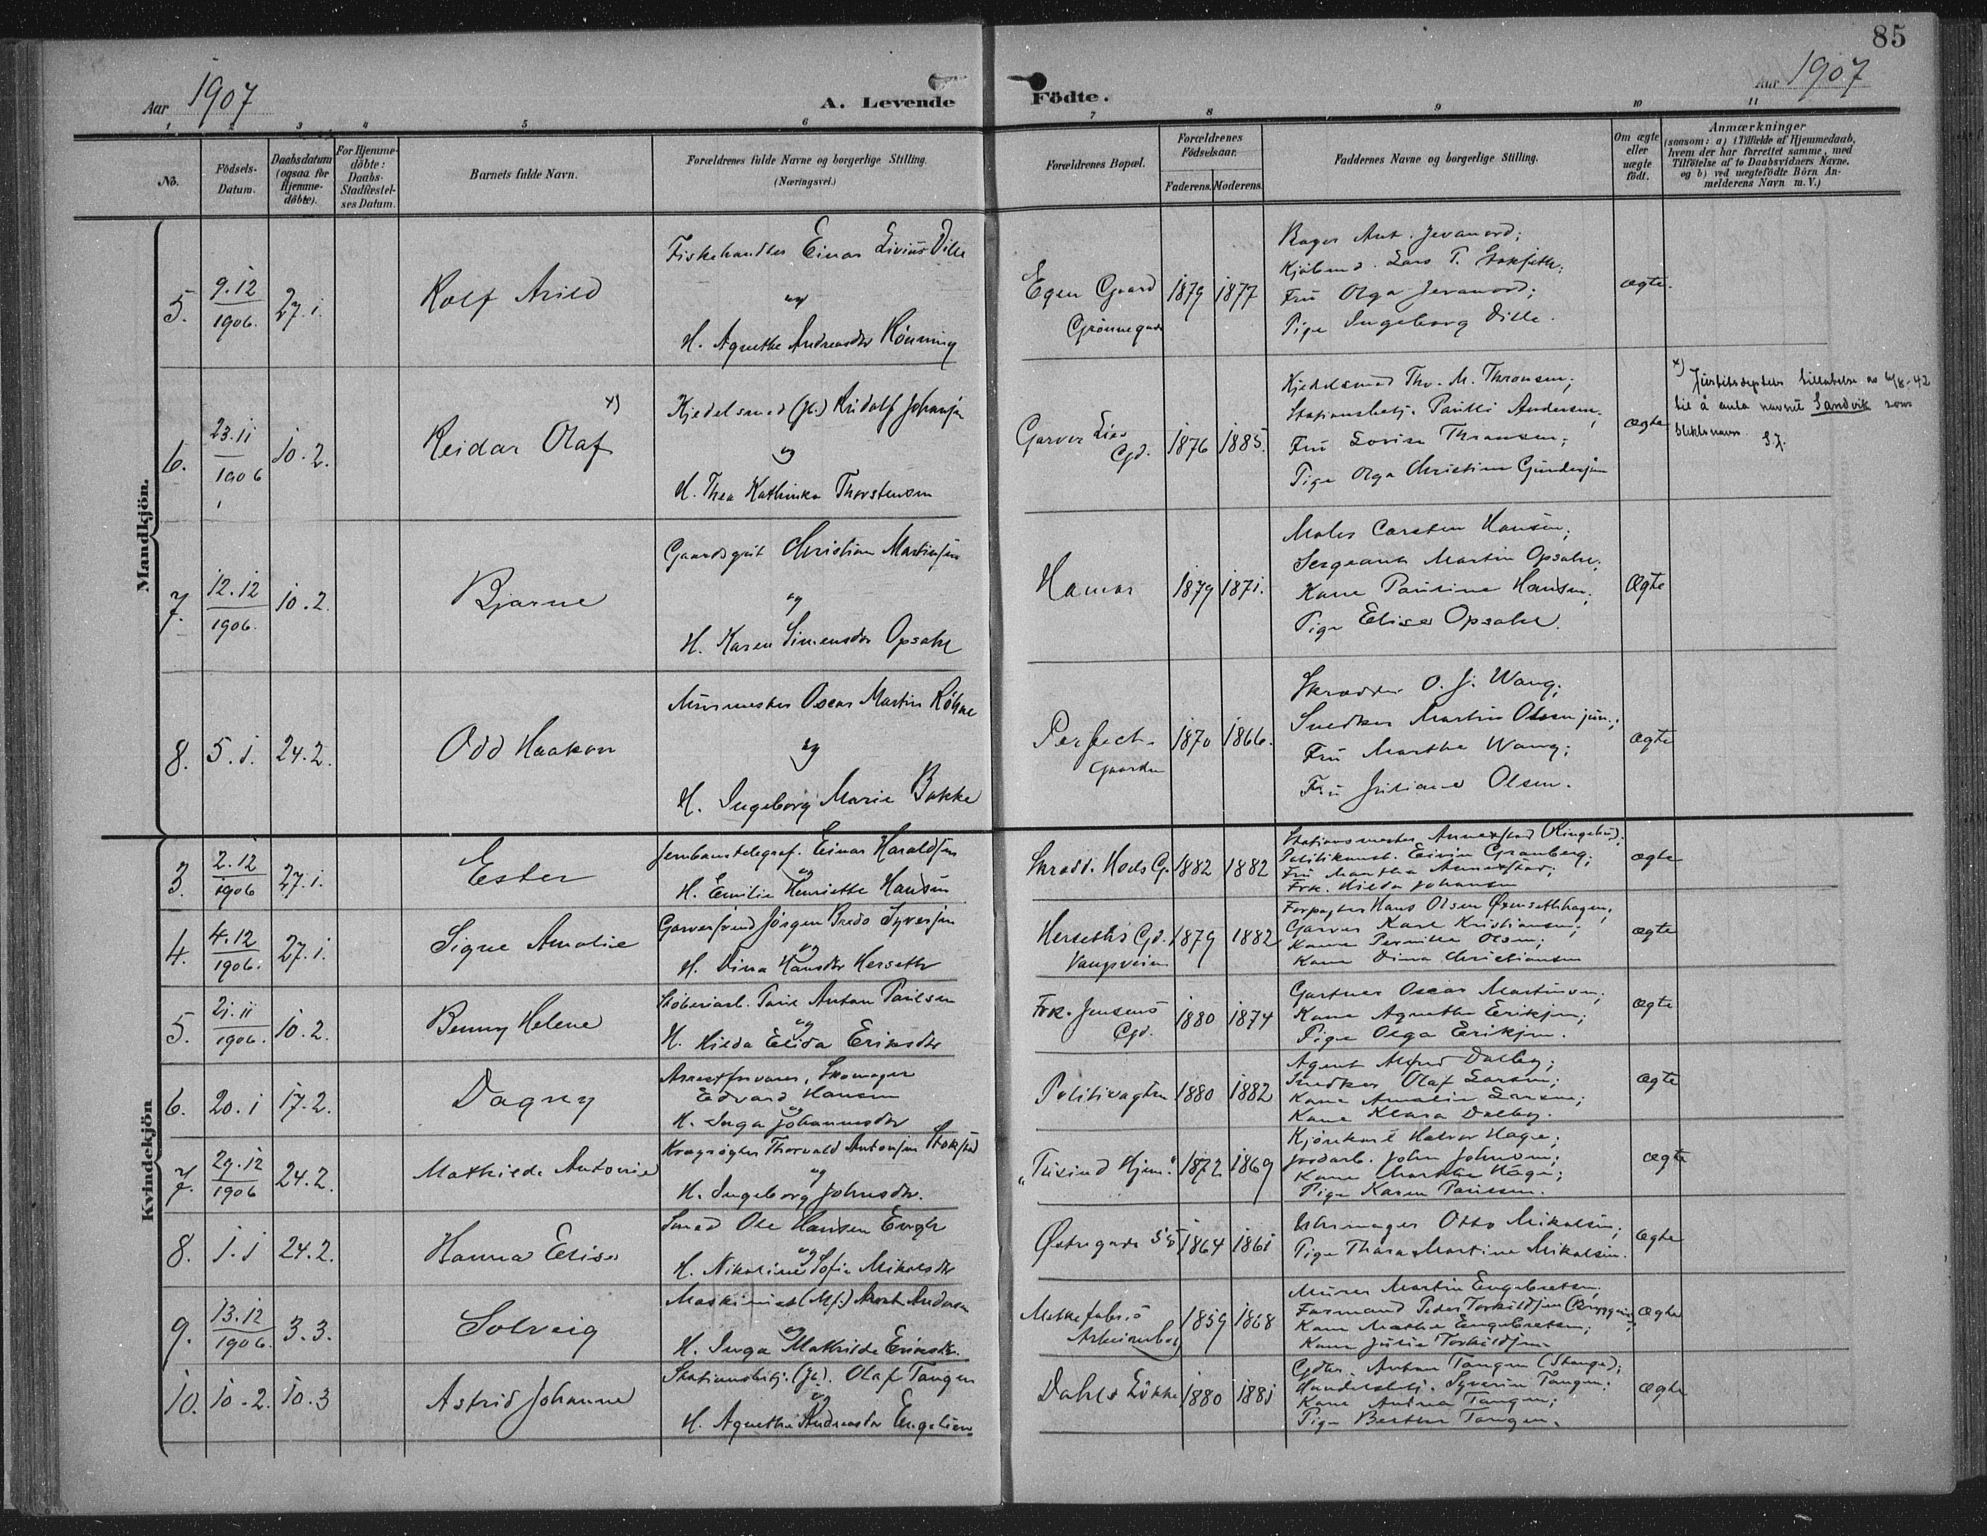 85
Aar 1907
A. Levende Födte.
Aar 1907
1 2 3 4 5 6 7 8 9 10 11
No.
Födsels-Datum.
Daabsdatum (ogsaa for Hjemme-döbte).
For Hjemme-döbte: Daabs-Stadfæstel-ses Datum.
Barnets fulde Navn.
Forældrenes fulde Navne og borgerlige Stilling.
(Næringsvei.)
Forældrenes Bopæl.
Forældrenes Födselsaar.
Faderens. Moderens.
Faddernes Navne og borgerlige Stilling.
Om ægte eller uægte födt.
Anmærkninger
(saasom: a) i Tilfælde af Hjemmedaab,
hvem der har forrettet samme, med
Tilföielse af to Daabsvidners Navne,
og b) ved uægtefödte Börn An-
melderens Navn m. V.)
Mandkjön.
5. 9.12 1906. 27.1. Rolf Arild
Fiskehandler Einar Livius Dille
og
H. Agnethe Andreasdtr Hönning
Egen Gaard
Grönnegade
1879 1877
Bager Ant. Jevanord;
Kjöbmd. Lars T.
Fru Olga Jevanord;
Pige Ingeborg Dille.
ægte.
6. 23.11 1906 10.2. Reidar Olaf x)
Kjedelsmed (Jb.) Ridolf Johansen
og
H. Thea Kathinka Thorstensen
Garver Lies
Gd.
1876 1885.
Kjedelsmed Thv. M. Thronsen;
Stationsbetj. Paulli Andersen;
Fru Lovise Thronsen;
Pige Olga Christine Gundersen
ægte
x) Justitsdeptets tillatelse av 6/8-42
til å anta navnet Sandvik som
slektsnavn. S.J.
7. 12.12 1906. 10.2. Bjarne
Gaardsgut Christian Martinsen
og
H. Karen Simensdtr Opsahl
Hamar
1879 1871.
Maler Carsten Hansen;
Sergeant Martin Opsahl;
Kone Pauline Hansen;
Pige Elise Opsahl.
Ægte
8. 5.1. 24.2. Odd Haakon
Murmester Oscar Martin Röhne
og
H. Ingeborg Marie Bakke
Perfect-
Gaarden
1870 1866.
Skrædder O. J. Wang;
Snedker Martin Olsen jun.;
Fru Marthe Wang;
Fru Juliane Olsen.
ægte
Kvindekjön
3. 2.12 1906 27.1. Ester
Jernbanetelegraf. Einar Haraldsen
og
H. Emilie Henriette Hansen
Skrædd. Hoels G.
1882 1882
Stationsmester Annexstad (Ringebu);
Politikonst. Eivin Granberg;
Fru Martha Annexstad;
Frk. Hilda Johansen
ægte
4. 4.12 1906. 27.1. Signe Amalie
Garversvend Jörgen Bredo Syversen
og
H. Dina Hansdtr Herseth
Herseths Gd.
Vangsveien
1879 1882
Forpagter Hans Olsen
Garver Karl Kristiansen;
Kone Pernille Olsen;
Kone Dina Christiansen
ægte
5. 21.11 1906. 10.2. Benny Helene
Stöberiarb. Paul Anton Paulsen
og
H. Hilda Elida Eriksdtr
Frk. Jensens
Gd.
1880 1874
Gartner Oscar Martinsen;
Kone Agnethe Eriksen;
Pige Olga Eriksen.
ægte
6. 20.1 17.2. Dagny
Arrestforvarer, Skomager
Edvard Hansen
og
H. Inga Johannesdtr
Politivagten
1880 1882
Agent Alfred Dalby;
Snedker Olaf Larsen;
Kone Amalie Larsen;
Kone Klara Dalby.
ægte
7. 29.12 1906 24.2. Mathilde Antonie
Kragvogter Thorvald Antonsen Stokstad
og
H. Ingeborg Johnsdtr.
"Tusind Hjem."
1872 1869
Kjörekarl Halvor Hage;
Jordarb. John Johnsen;
Kone Marthe Hage;
Pige Karen Paulsen.
ægte
8. 1.1 24.2. Hanna Elise
Smed Ole Hansen Engh
og
H. Nikoline Sofie Mikalsdtr
Østregade 55
1864 1861
Uhrmager Otto Mikalsen;
Pige Thora Martine Mikalsen.
ægte
9. 13.12 1906. 3.3. Solveig
Maskinist (Mf.) Anders
og
H. Inga Mathilde Eriksdtr.
Melkefabr.s
Arbeiderbol.
1859 1868
Murer Martin Engebretsen;
Formand Peder Torkildsen
Kone Mathe Engebretsen;
Kone Julie Torkildsen.
Ægte
10. 10.2. 10.3 Astrid Johanne
Stationsbetj. (Jb). Olaf Tangen
og
H. Agnethe Andreasdtr Engelien.
Dahls Lökke
1880 1881
Gdbr. Anton Tangen (Stange);
Handelsbetj. Syverin Tangen;
Kone Andrea Tangen;
Pige Berthe Tangen.
ægte